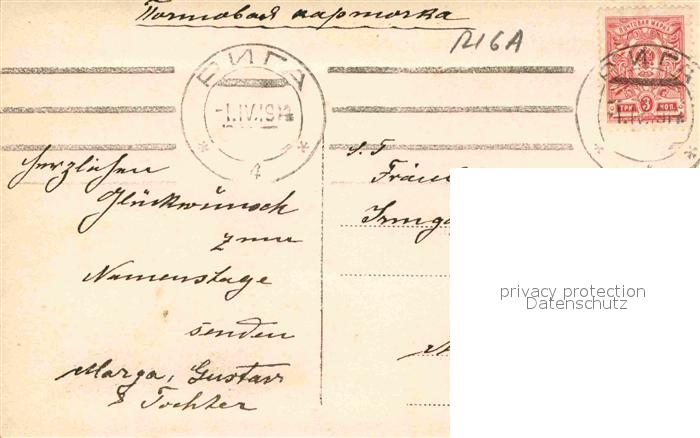 Почтовая карточка
RIGA
ПОЧТОВАЯ МАРКА
3 КОП
РИГА
-1.IV.1912
4
РИГА
herzlichen
Glückwunsch
zum
Namenstage
senden
Marga, Gustav
& Tochter
S. T
Fräu
Irmga
privacy protection
Datenschutz